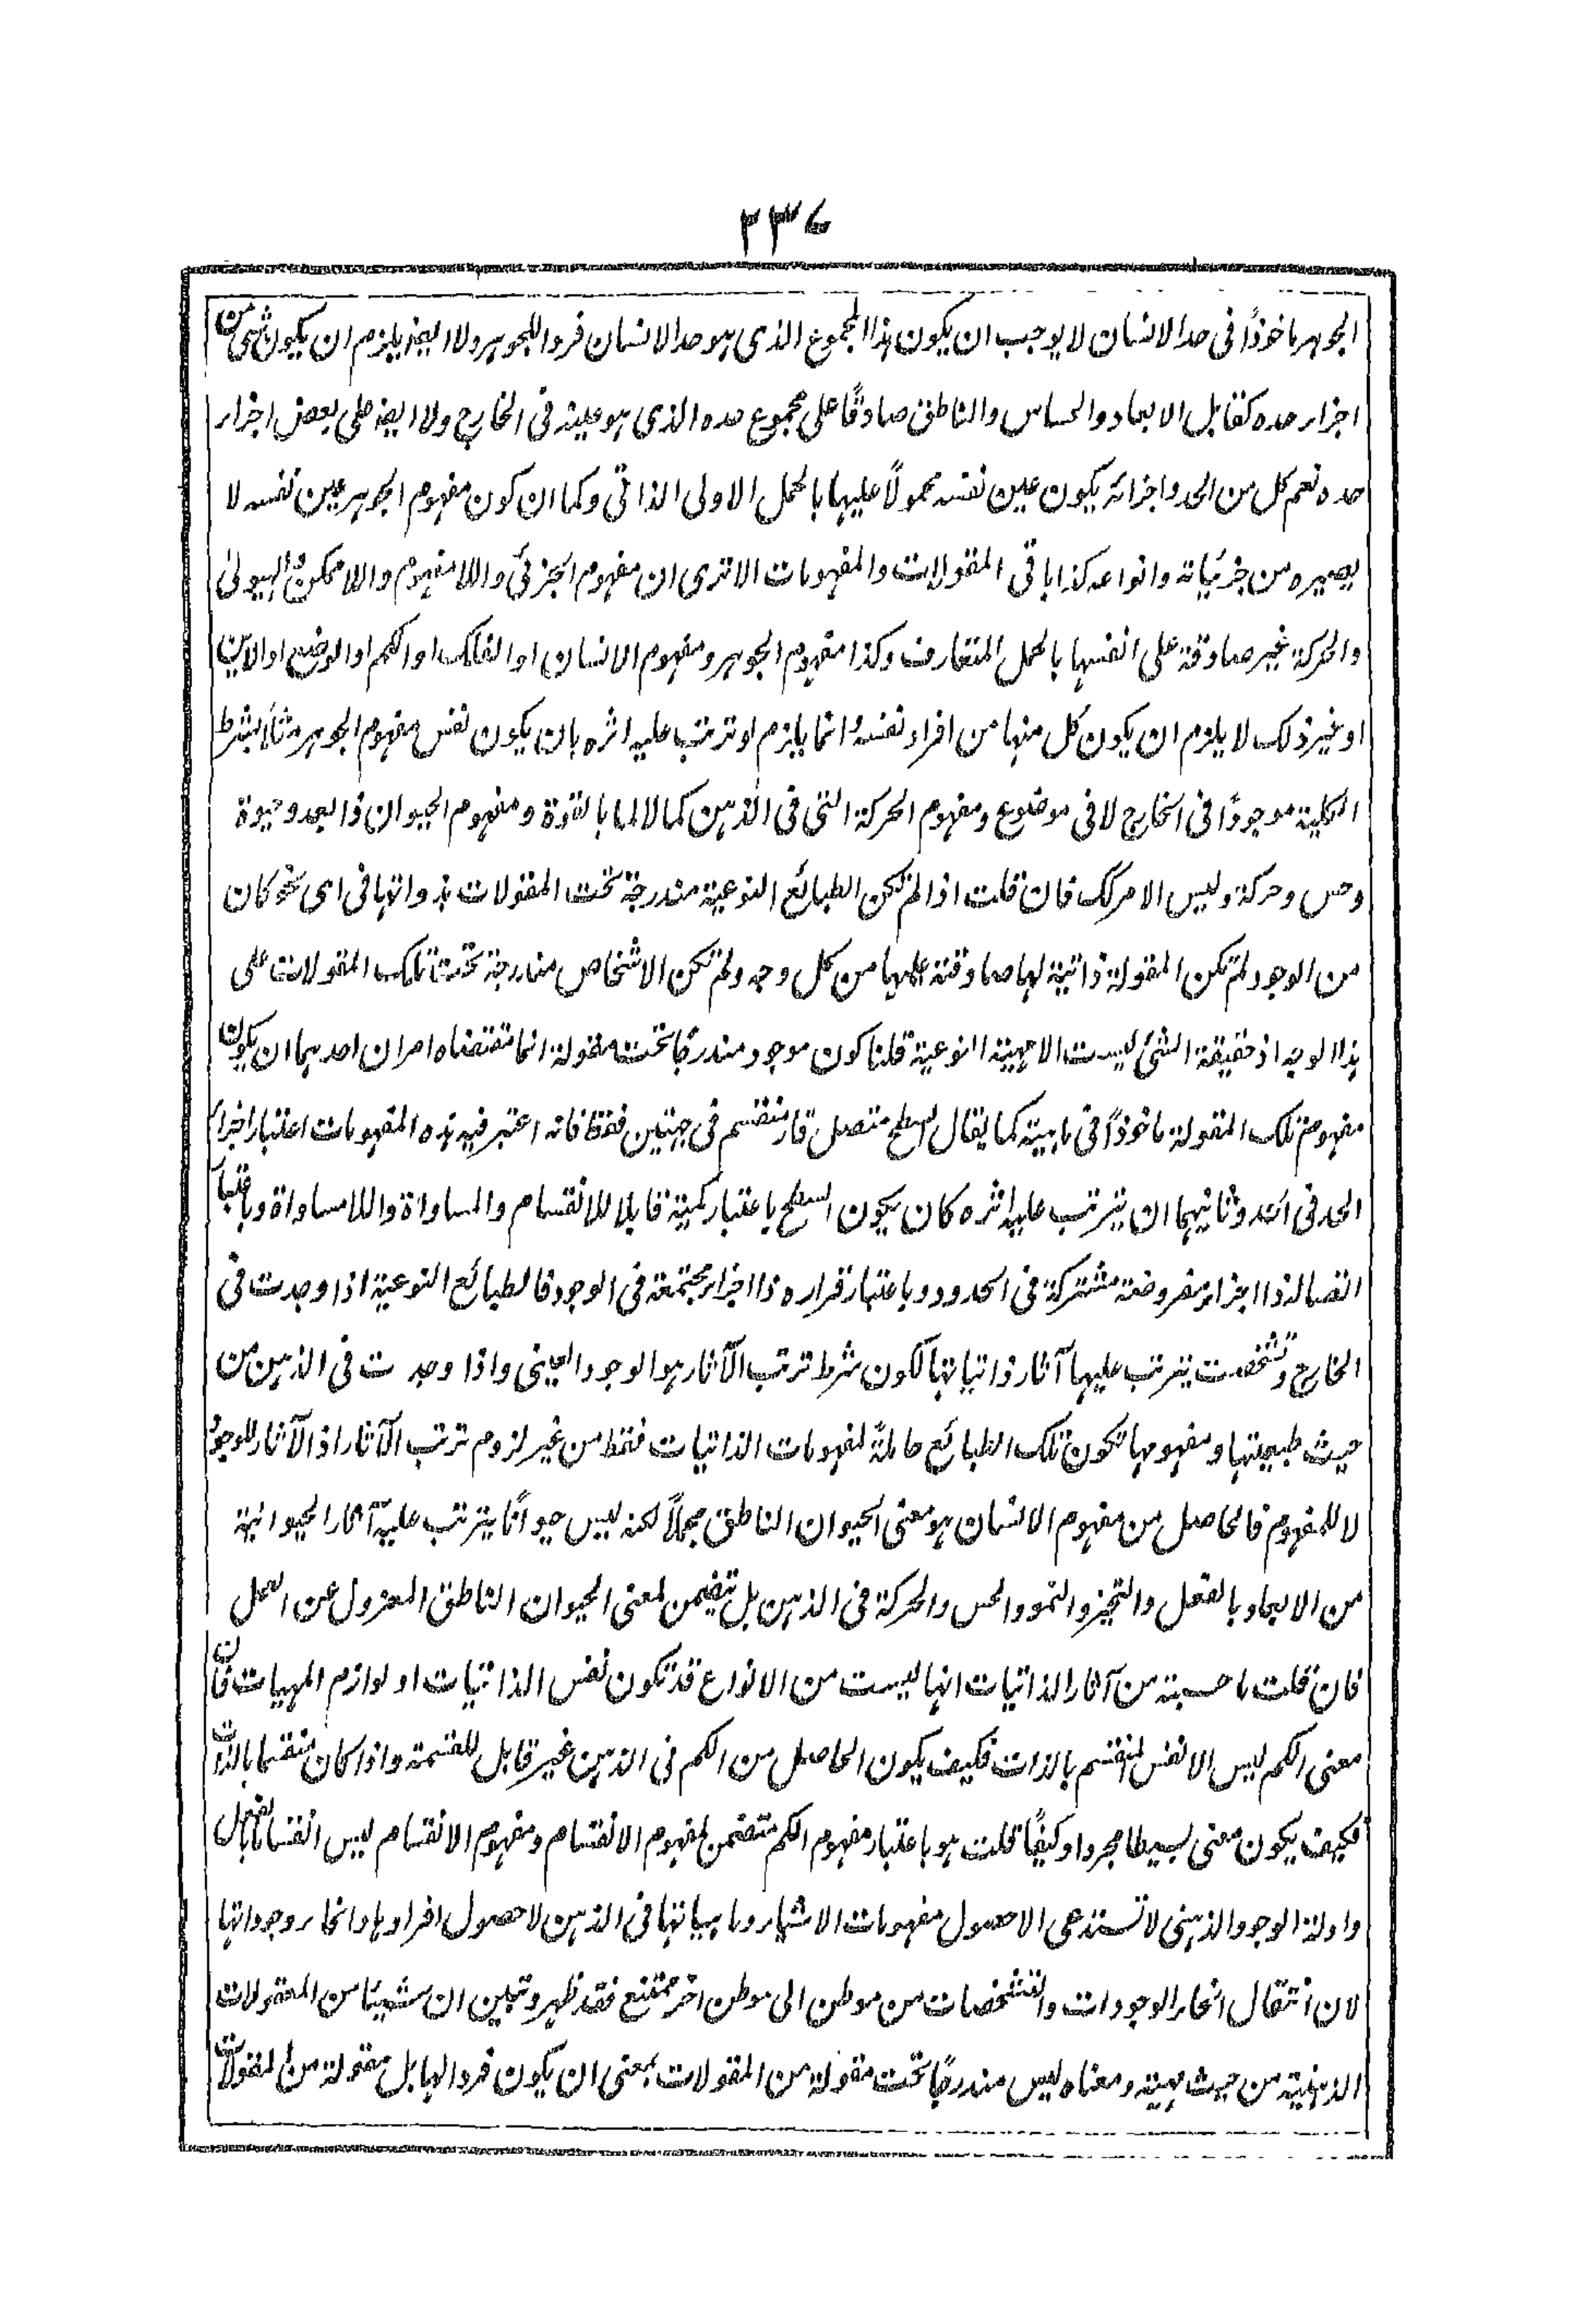 ٢٣٦
الجوهر ماخوذًا فى حد الانسان لا يوجب ان يكون هذا المجموع الذى هو حد الانسان فردا للجوهر ولا ايضا يلزم ان يكون شئ من
اجزاء حده كقابل الابعاد والحساس والناطق صادقًا على مجموع حده الذى هو عينه فى الخارج ولا ايضا على بعض اجزاء
حده نعم كل من الحد واجزائه يكون عين نفسه محمولًا عليها بالحمل الاولى الذاتى وكما ان كون مفهوم الجوهر عين نفسه لا
يصيره من جزئياته وانواعه كذا باقى المقولات والمفهومات الا ترى ان مفهوم الجزئى واللا مفهوم واللا ممكن والهيولى
والحركة غير صادقة على انفسها بالحمل المتعارف وكذا مفهوم الجوهر ومفهوم الانسان او الفلك او الكم او الوضع او الاين
او غير ذلك لا يلزم ان يكون كل منها من افراد نفسه وانما يلزم لو ترتب عليه اثره بان يكون نفس مفهوم الجوهر مثلًا بشرط
الكلية موجودًا فى الخارج لا فى موضوع ومفهوم الحركة التى فى الذهن كمالا لما بالقوة ومفهوم الحيوان ذا بعد وحيوة
وحس وحركة وليس الامر كك فان قلت اذا لم تكن الطبائع النوعية مندرجة تحت المقولات بذواتها فى اى نحو كان
من الوجود لم تكن المقولة ذاتية لها صادقة عليها من كل وجه ولم تكن الاشخاص مندرجة تحت تلك المقولات على
هذا الوجه اذ حقيقة الشئ ليست الا مهيته النوعية قلنا كون موجود مندرجًا تحت مقولة انما مقتضاه امران احدهما ان يكون
مفهوم تلك المقولة ماخوذًا فى ماهيته كما يقال السطح متصل قار منقسم فى جهتين فقط فانه اعتبر فيه هذه المفهومات اعتبار اجزاء
الحد فى الحد وثانيهما ان يترتب عليه اثره كان يكون السطح باعتبار كميته قابلا للانقسام والمساواة واللا مساواة وباعتبار
اتصاله ذا اجزاء مفروضة مشتركة فى الحدود وباعتبار قراره ذا اجزاء مجتمعة فى الوجود فالطبائع النوعية اذا وجدت فى
الخارج وتشخصت يترتب عليها آثار ذاتياتها لكون شرط ترتب الآثار هو الوجود العينى واذا وجدت فى الذهن من
حيث طبيعتها ومفهومها تكون تلك الطبائع حاملةً لمفهومات الذاتيات فقط من غير لزوم ترتب الآثار اذ الآثار للوجود
لا للمفهوم فالحاصل من مفهوم الانسان هو معنى الحيوان الناطق مجملًا لكنه ليس حيوانًا يترتب عليه آثار الحيوانية
من الابعاد بالفعل والتحيز والنمو والحس والحركة فى الذهن بل يتضمن لمعنى الحيوان الناطق المعزول عن العمل
فان قلت ما حسبته من آثار الذاتيات انها ليست من الانواع قد تكون نفس الذاتيات او لوازم المهيات فان
معنى الكم ليس الا نفس المنقسم بالذات فكيف يكون الحاصل من الكم فى الذهن غير قابل للقسمة واذا كان منقسما بالذات
فكيف يكون معنى بسيطا مجردا وكيفًا قلت هو باعتبار مفهوم الكم متضمن لمفهوم الانقسام ومفهوم الانقسام ليس انقساما بالفعل
وادلة الوجود الذهنى لا تستدعى الا حصول مفهومات الاشياء وماهياتها فى الذهن لا حصول افرادها وانحاء وجوداتها
لان انتقال انحاء الوجودات والتشخصات من موطن الى موطن اخر ممتنع فقد ظهر وتبين ان شيئا من المعقولات
الذهنية من حيث مهيته ومعناه ليس مندرجًا تحت مقولة من المقولات بمعنى ان يكون فردا لها بل مقولة من المقولات